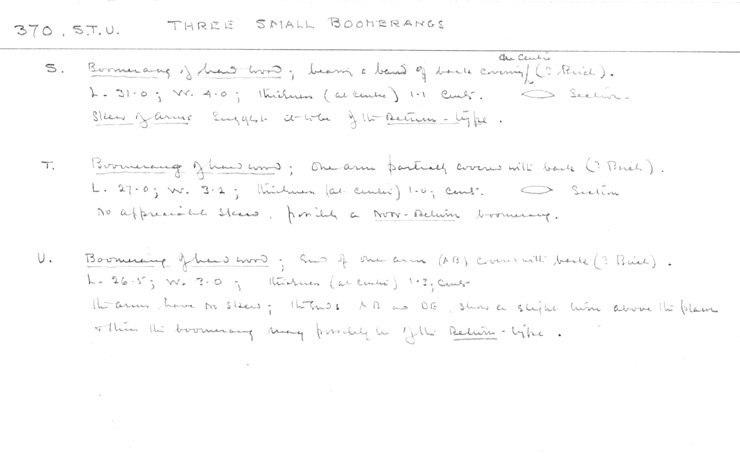 370. S.T.U. THREE SMALL BOOMERANGS
S. Boomerang of hard wood; bears a band of bark covering the centre (? Birch).
L. 31.0; W. 4.0; thickness (at centre) 1.1 cent. Section.
Skew of arms suggests it to be of the Return-type.
T. Boomerang of hard wood; one arm partially covered with bark (? Birch).
L. 27.0; W. 3.2; thickness (at centre) 1.0; cent. Section
No appreciable skew, possibly a Non-Return boomerang.
U. Boomerang of hard wood; End of one arm (AB) covered with bark (? Birch).
L. 26.5; W. 3.0; thickness (at centre) 1.3; cent
The arms have no skew; the ends AB and DE show a slight turn above the plane
& thus the boomerang may possibly be of the Return-type.